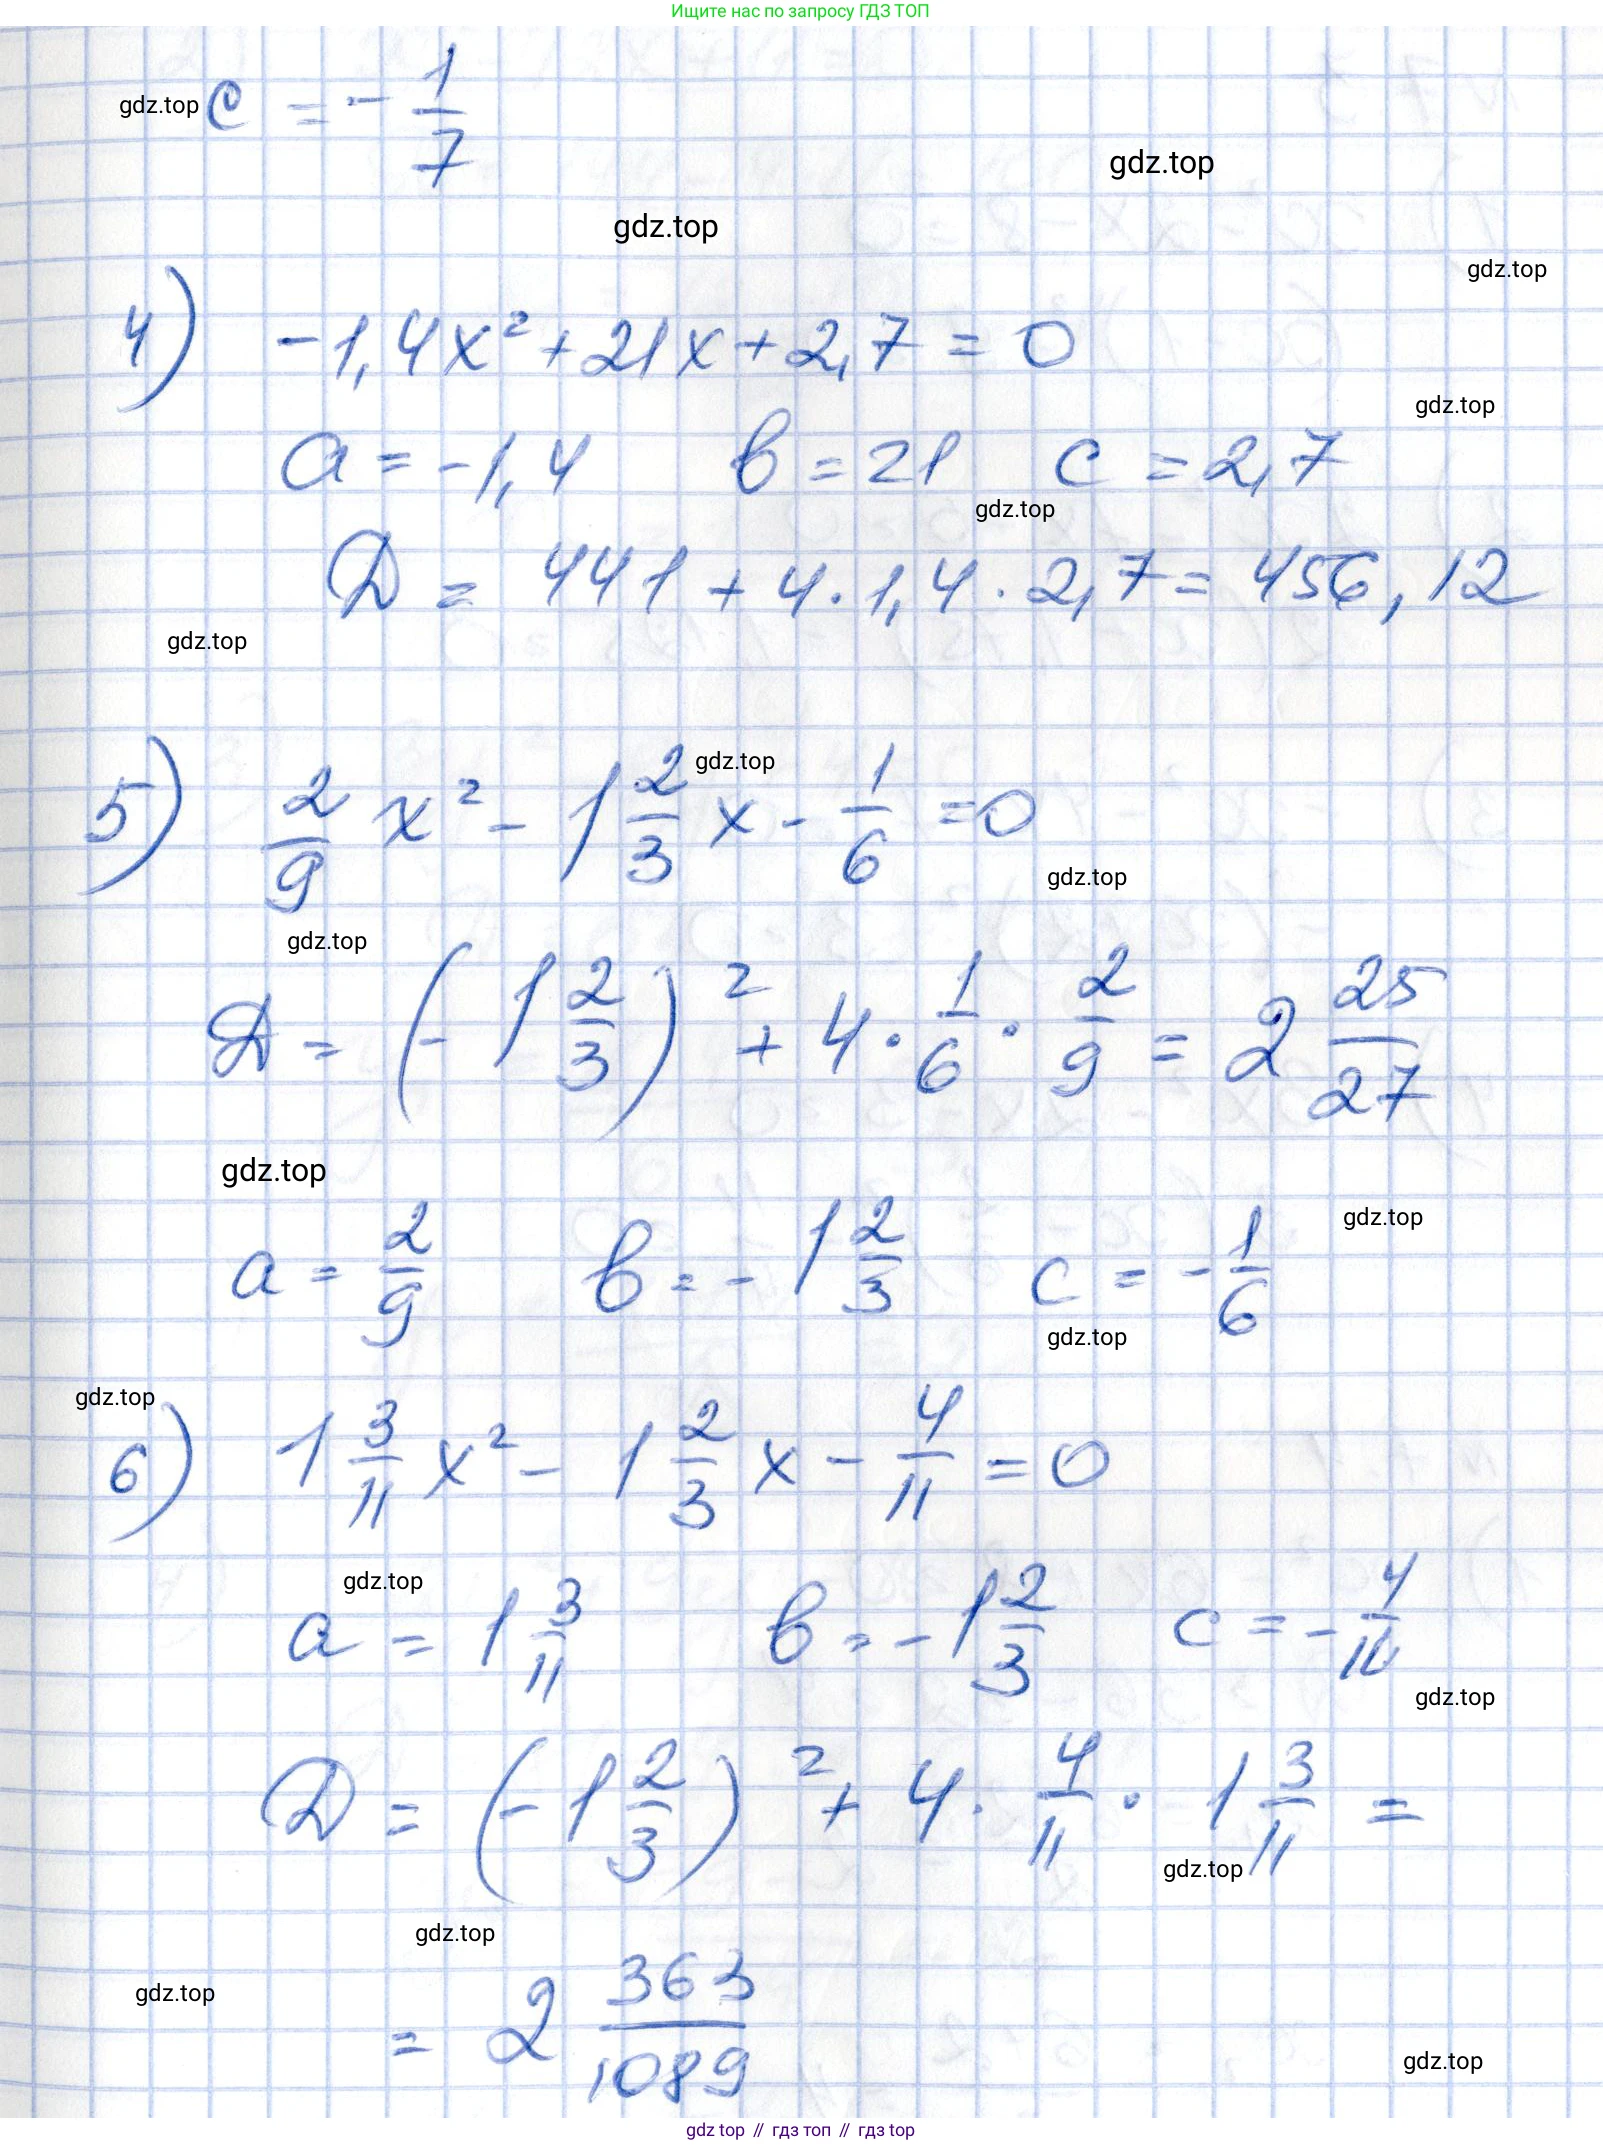 Ищите нас по запросу ГДЗ ТОП
c = - 1/7
gdz.top
gdz.top
gdz.top
gdz.top
4) -1,4x² + 21x + 2,7 = 0
gdz.top
a = -1,4 b = 21 c = 2,7
gdz.top
D = 441 + 4 · 1,4 · 2,7 = 456,12
gdz.top
gdz.top
5) 2/9 x² - 1 2/3 x - 1/6 = 0
gdz.top
gdz.top
D = (-1 2/3)² + 4 · 1/6 · 2/9 = 2 25/27
gdz.top
gdz.top
a = 2/9 b = - 1 2/3 c = - 1/6
gdz.top
gdz.top
6) 1 3/11 x² - 1 2/3 x - 4/11 = 0
gdz.top
a = 1 3/11 b = -1 2/3 c = - 4/11
gdz.top
D = (-1 2/3)² + 4 · 4/11 · 1 3/11 =
gdz.top
gdz.top
gdz.top
= 2 363/1089
gdz.top
gdz top // гдз топ // гдз top